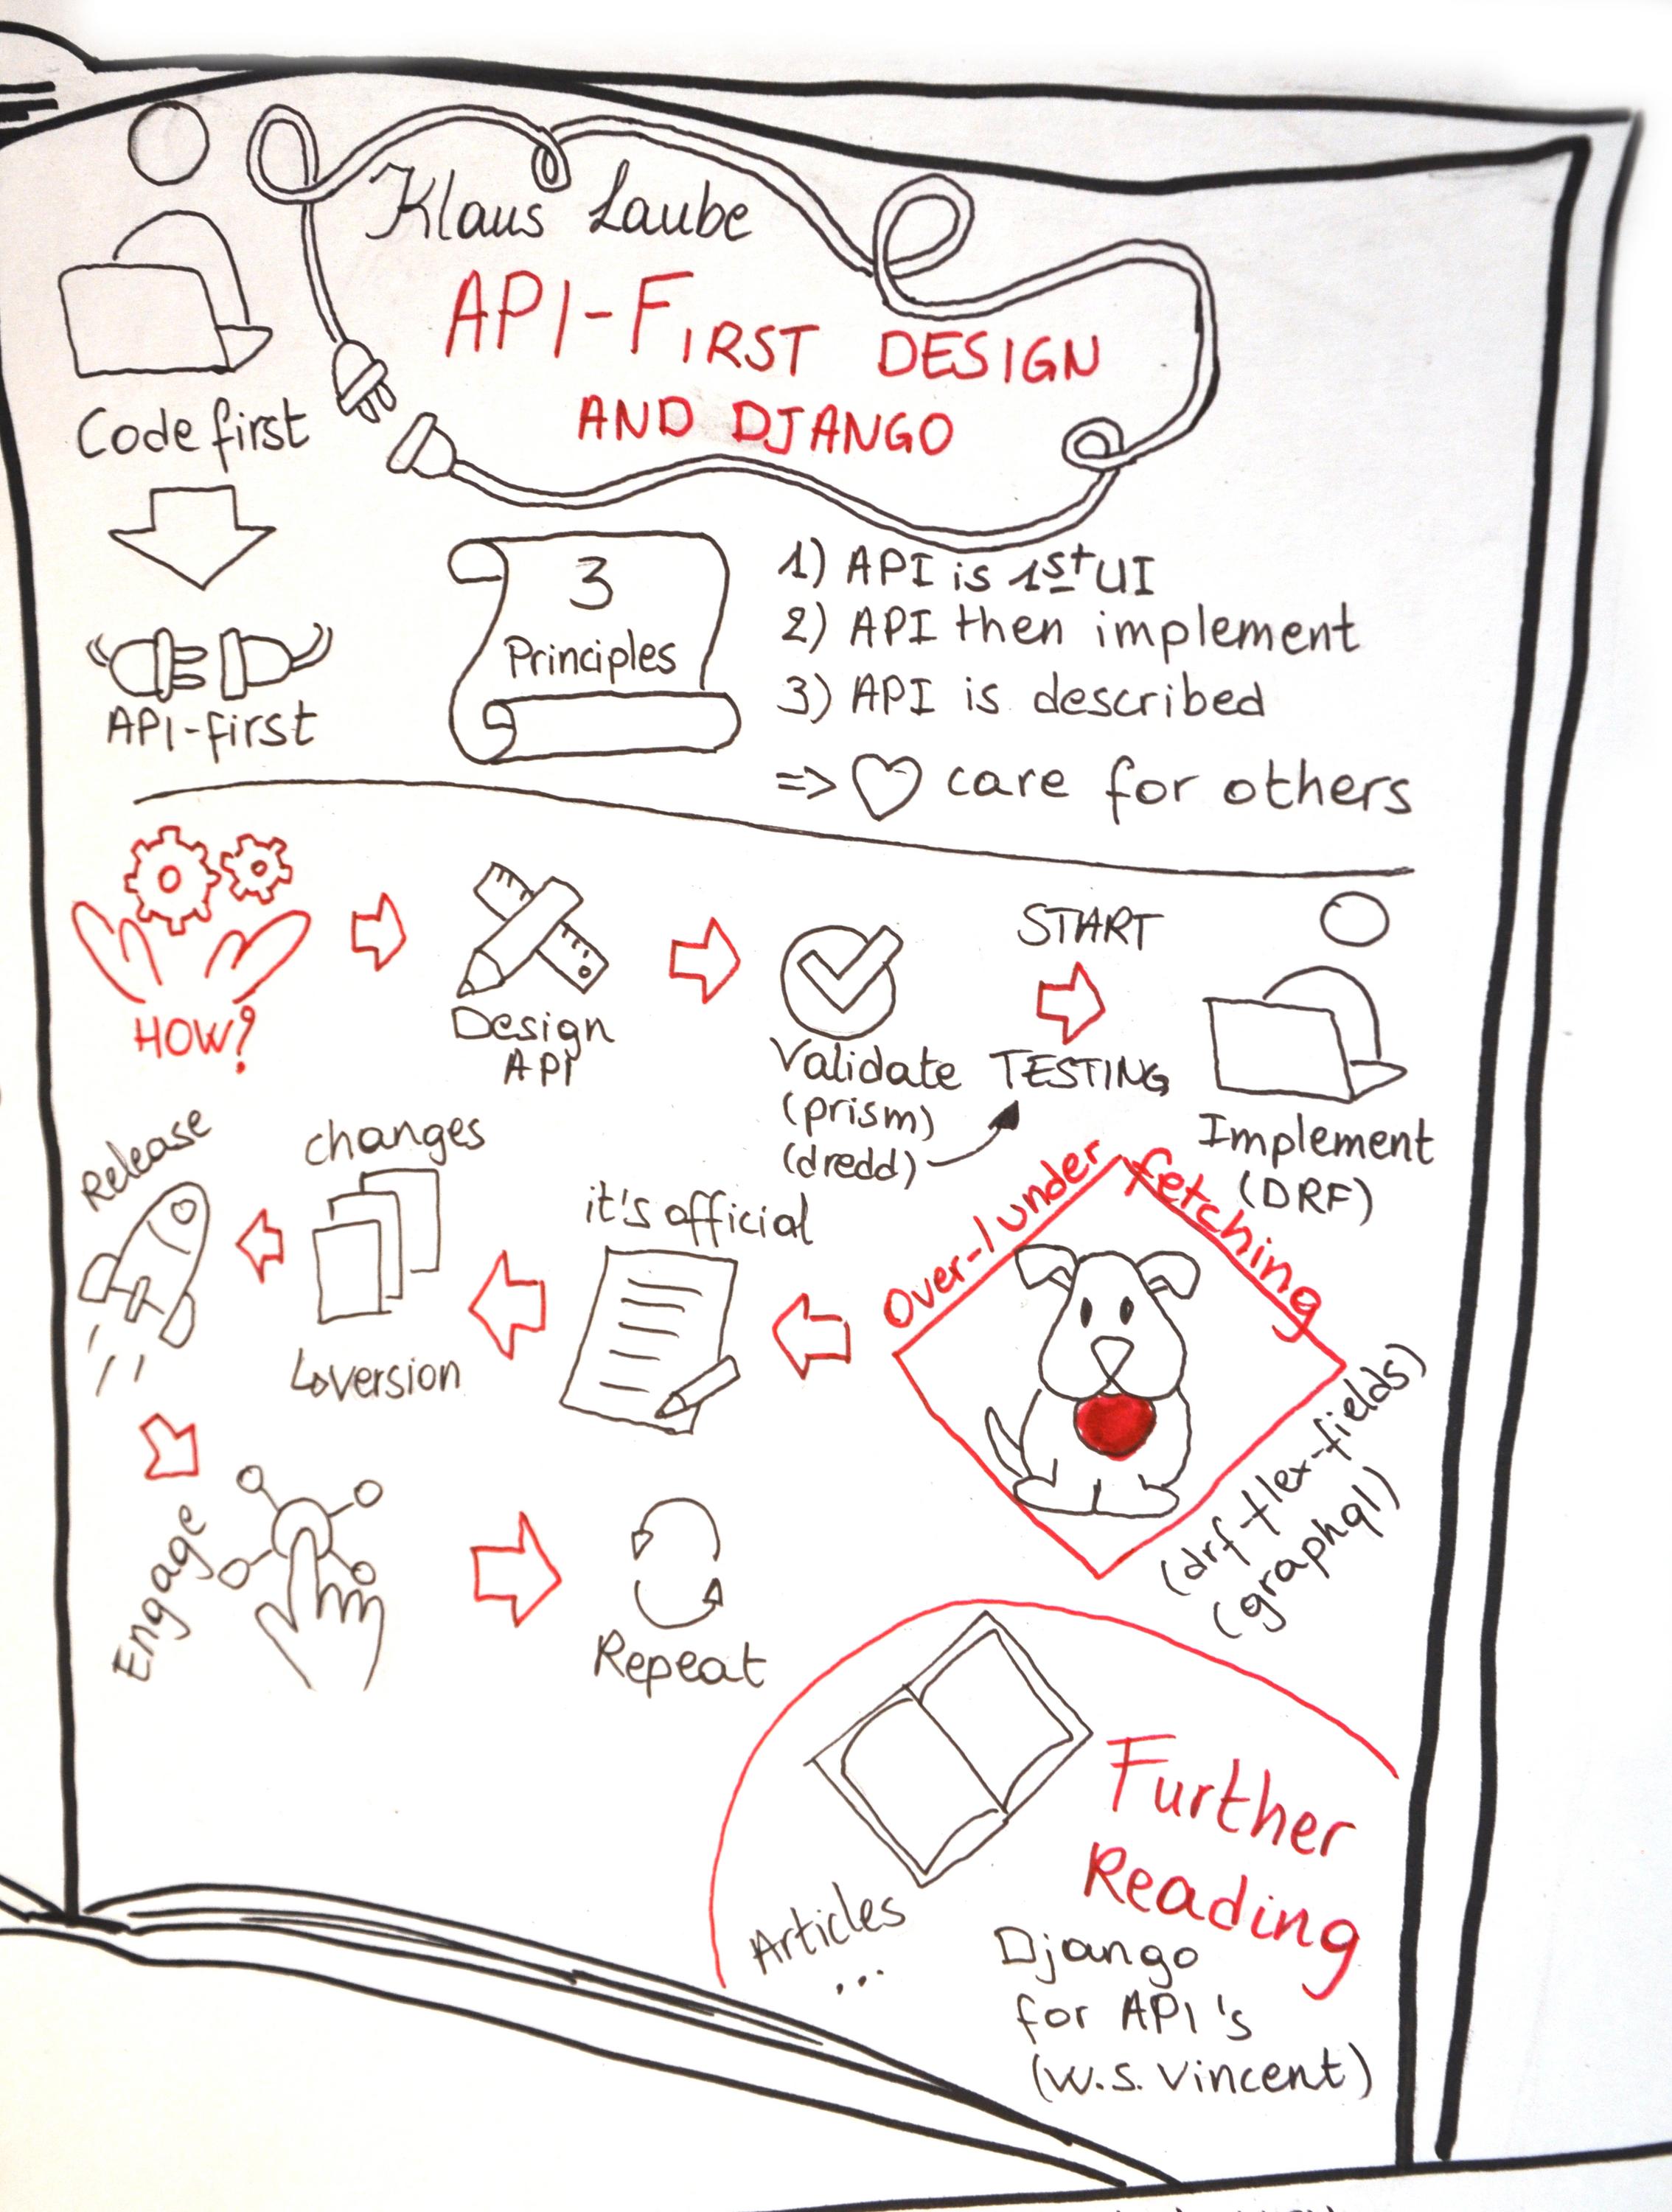 Klaus Laube
API-FIRST DESIGN
AND DJANGO
Code first
API-first
3
Principles
1) API is 1st UI
2) API then implement
3) API is described
=> ♡ care for others
HOW?
Design
API
Validate
(prism)
(dredd)
START
TESTING
Implement
(DRF)
Over-/under fetching
(drf-flex-fields)
(graphql)
it's official
changes
↳version
Release
Engage
Repeat
Further
Reading
Articles
...
Django
for API's
(W.S. Vincent)